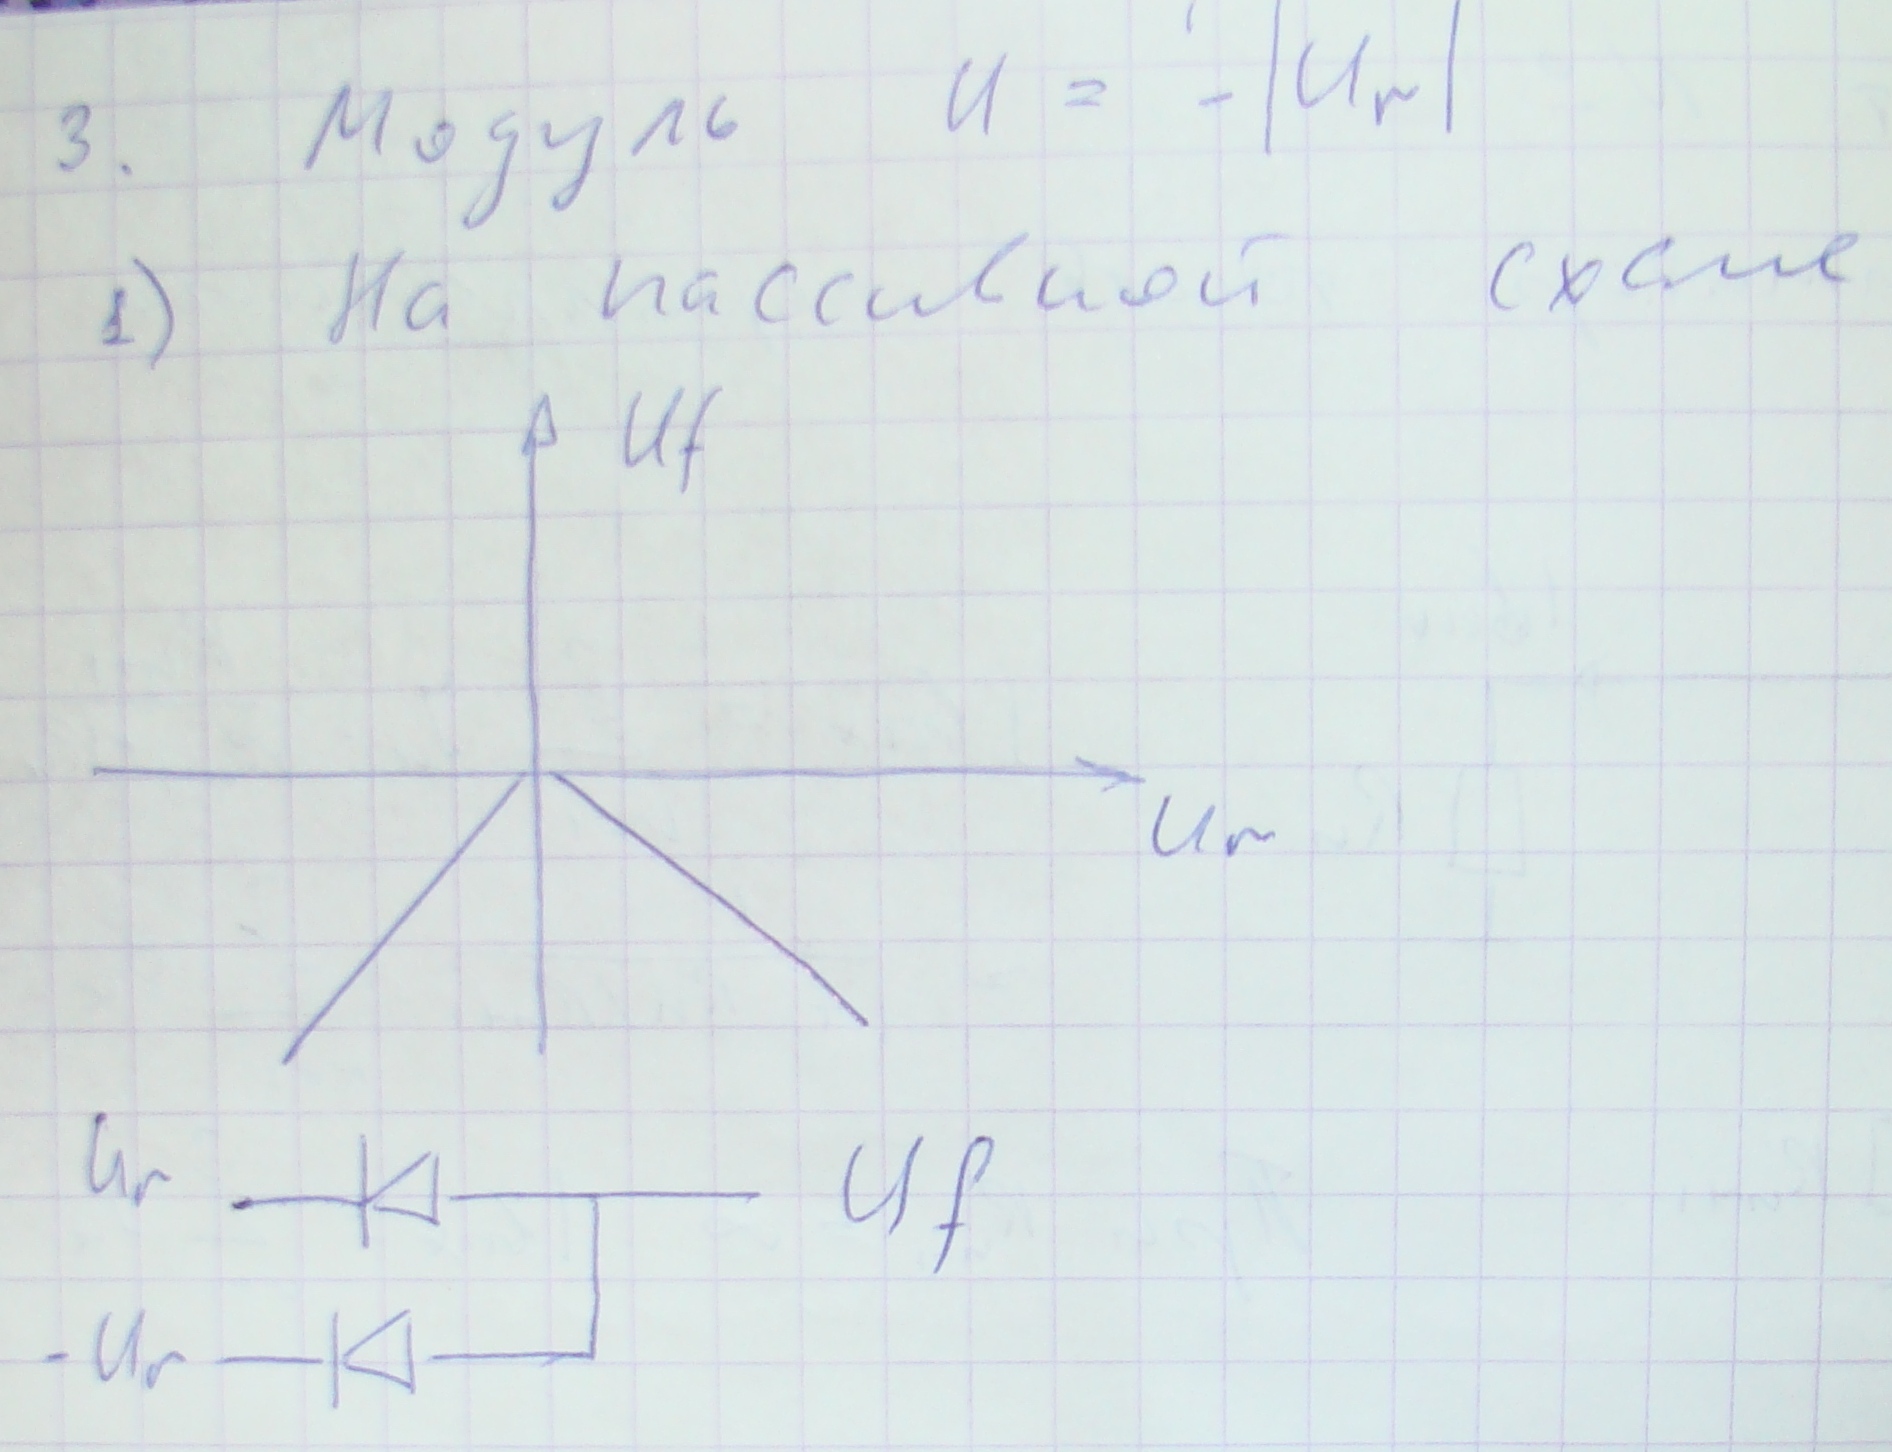 3. Модуль U = -|Ur|
1) На пассивной схеме
Uf
Ur
Ur Uf
-Ur